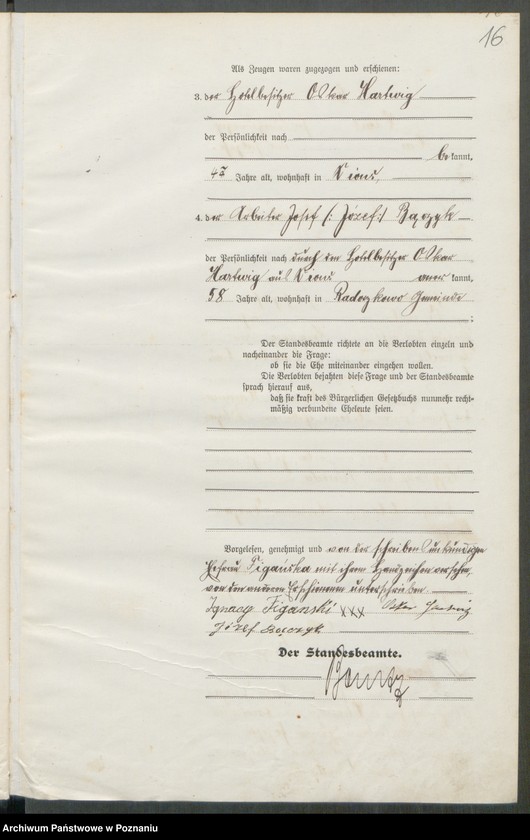 16
Als Zeugen waren zugezogen und erschienen:
3. der Hotelbesitzer Oskar Hartwig
der Persönlichkeit nach
bekannt,
Jahre alt, wohnhaft in Xions,
4. der Arbeiter Josef (: Józef :)
der Persönlichkeit nach durch den Hotelbesitzer Oskar
Hartwig aus Xions anerkannt,
58 Jahre alt, wohnhaft in Gemeinde
;
Der Standesbeamte richtete an die Verlobten einzeln und
nacheinander die Frage:
ob sie die Ehe miteinander eingehen wollen.
Die Verlobten bejahten diese Frage und der Standesbeamte
sprach hierauf aus,
daß sie kraft des Bürgerlichen Gesetzbuchs nunmehr recht-
mäßig verbundene Eheleute seien.
Vorgelesen, genehmigt und von der schreibensunkundigen
Ehefrau Figańska mit ihrem Handzeichen versehen,
von den anderen Erschienenen unterschrieben.
Ignacy Figański xxx Oskar Hartwig
Józef
Der Standesbeamte.
Archiwum Państwowe w Poznaniu